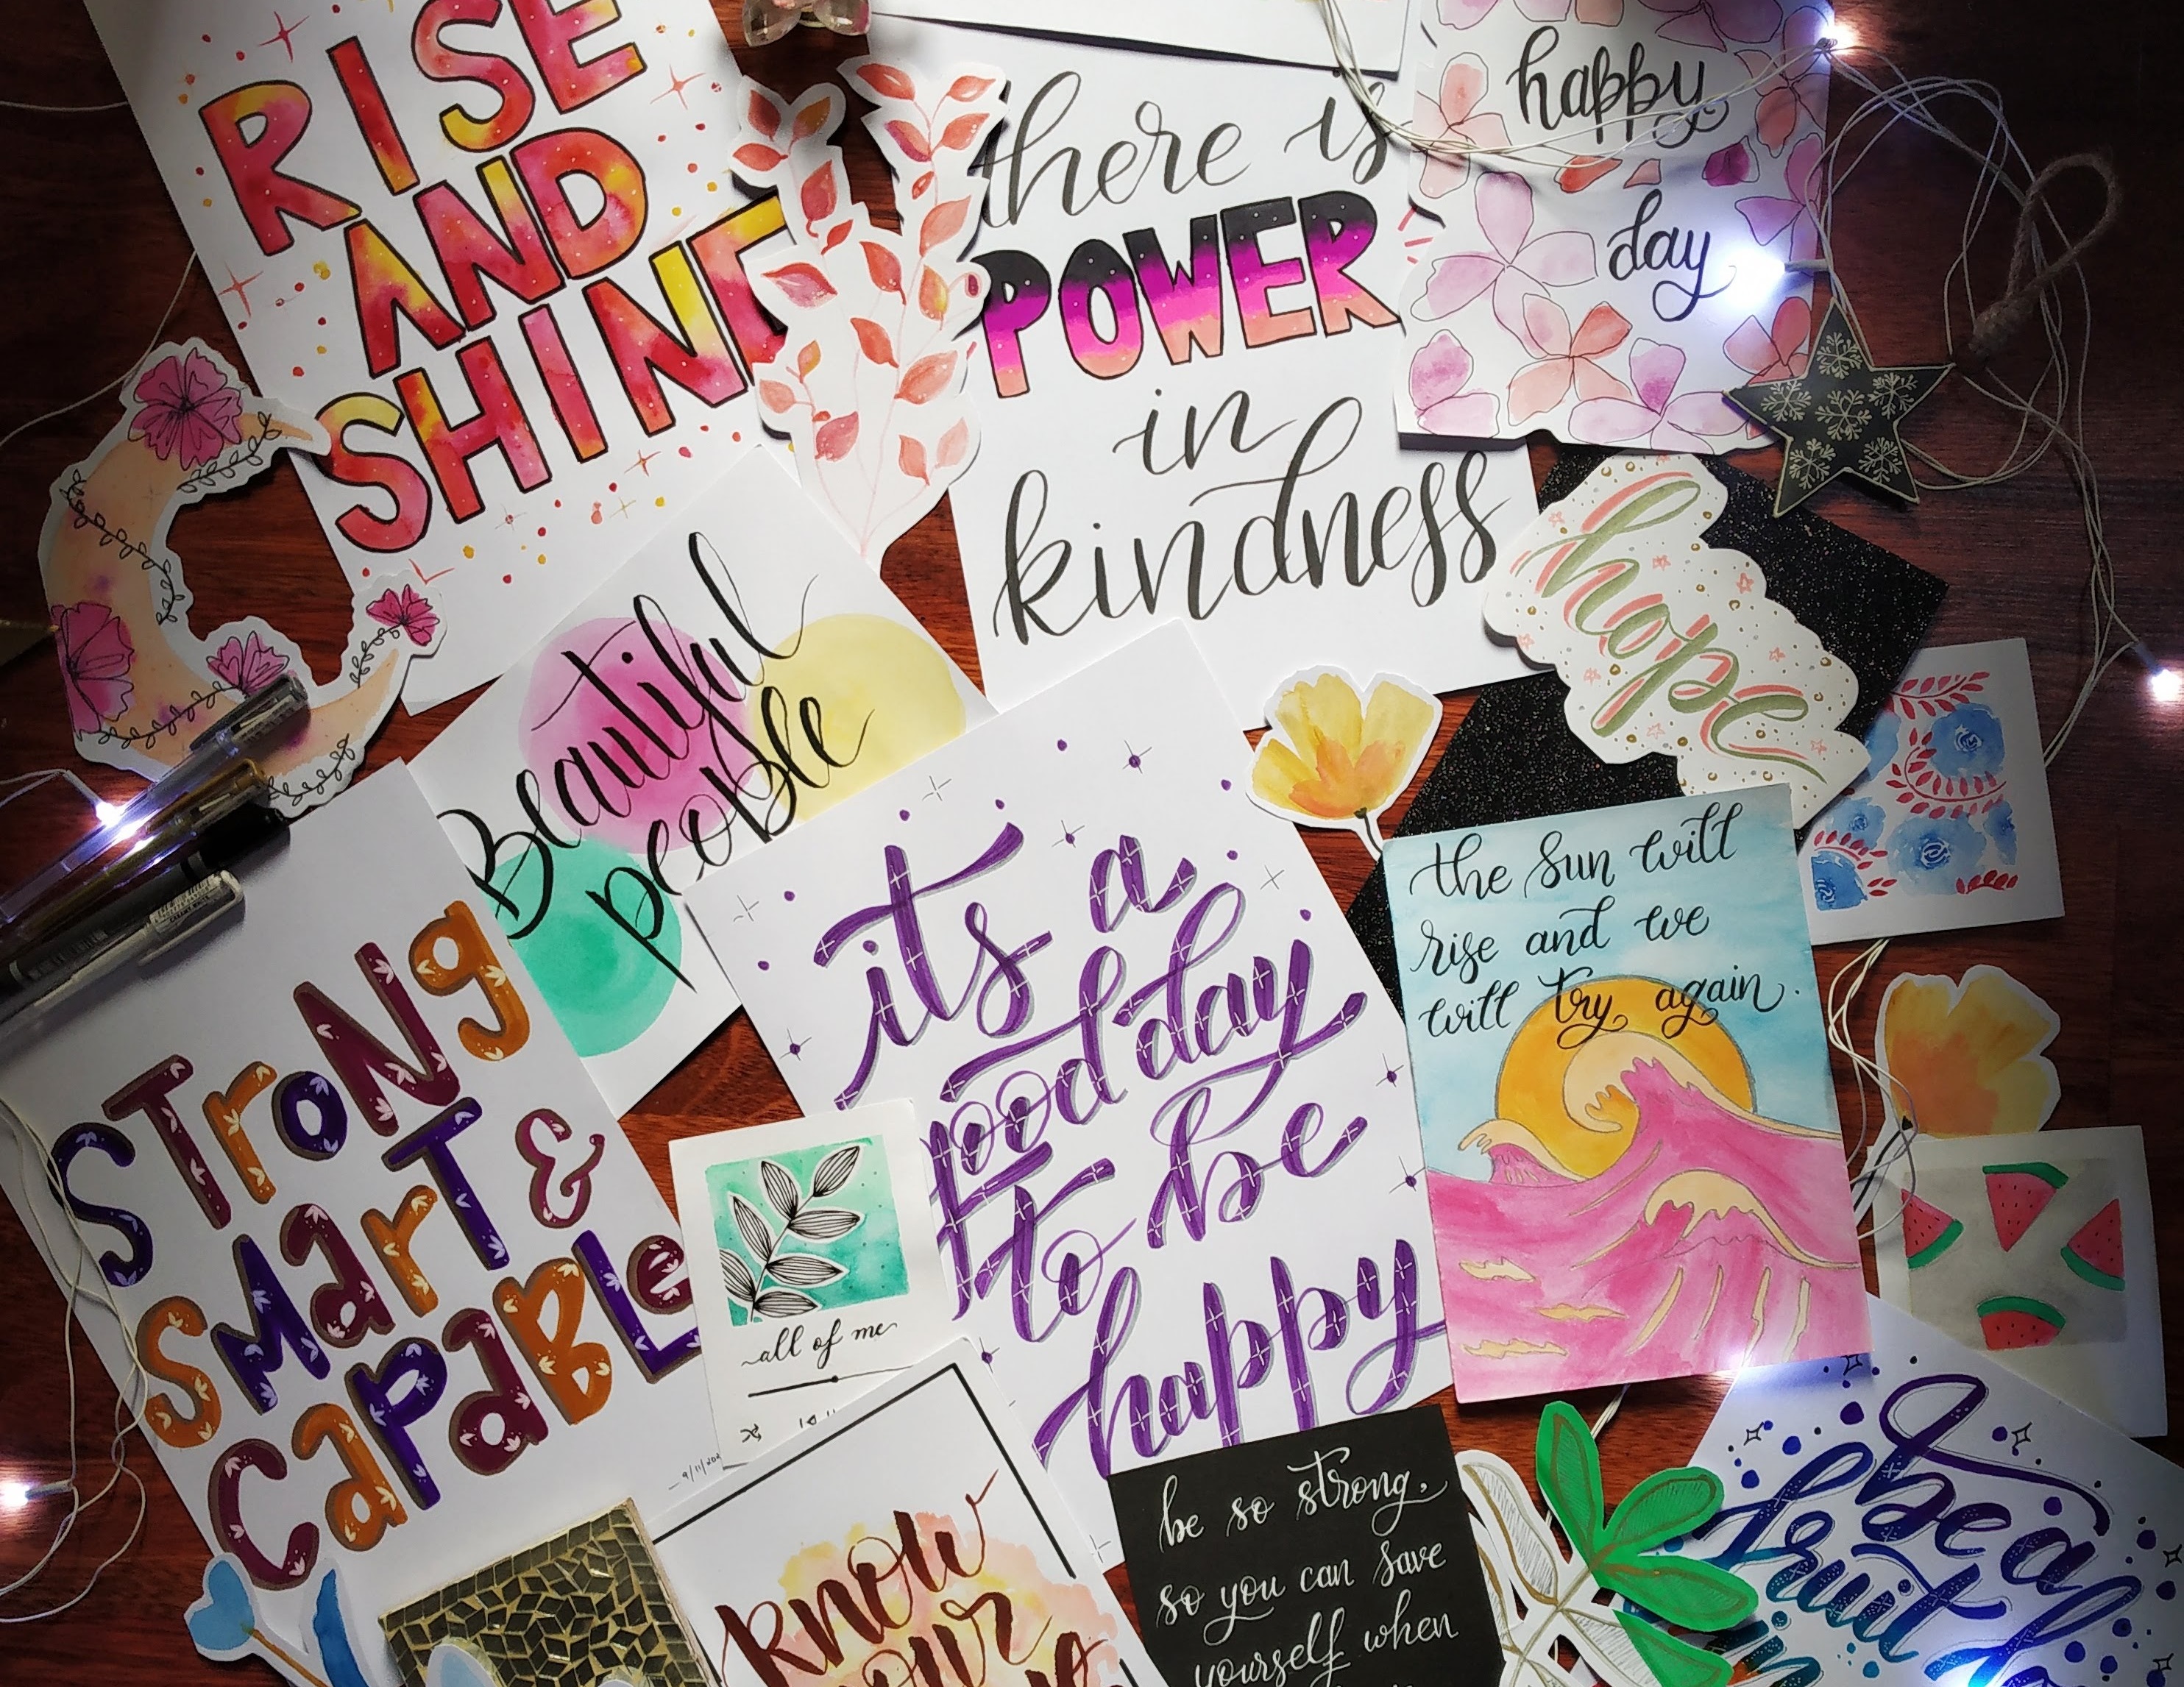 RISE
AND
SHINE
there is
POWER
in
kindness
happy
day
hope
Beautiful
people
its a
good day
to be
happy
the sun will
rise and we
will try again.
STroNg
SMarT &
CaPaBLe
all of me
know
your
be so strong,
so you can save
yourself when
be a
fruit
in